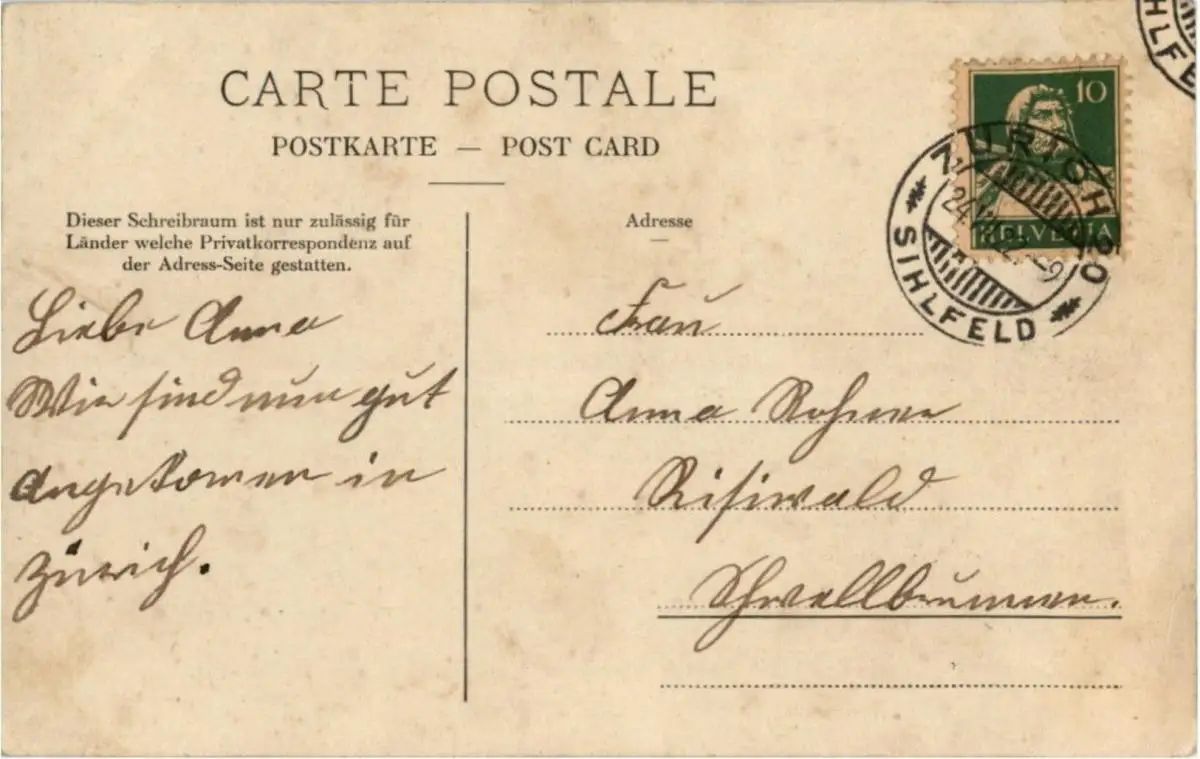 CARTE POSTALE
POSTKARTE — POST CARD
Dieser Schreibraum ist nur zulässig für
Länder welche Privatkorrespondenz auf
der Adress-Seite gestatten.
Liebe Anna
Wir sind nun gut
angekomen in
Zürich.
Adresse
Frau
Anna Rohner
Risiwald
Schwellbrunnen.
10
HELVETIA
ZÜRICH
SIHLFELD
SIHLFE